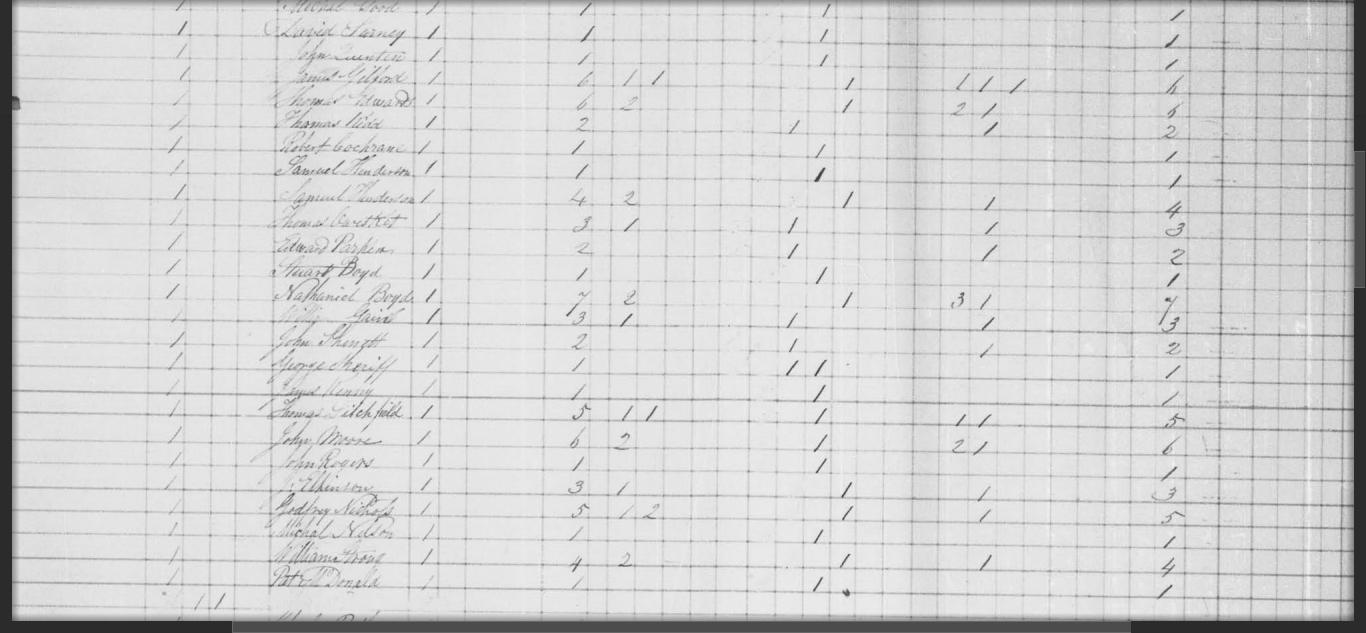 1 1 1 1 1
1 David 1 1 1 1
John 1 1 1 1
1 James Gilford 1 6 1 1 1 1 1 1 6
1 Thomas Edwards 1 6 2 1 2 1 6
1 Thomas Kidd 1 2 1 1 2
1 Robert Cochrane 1 1 1 1
1 Samuel Henderson 1 1 1 1
1 Samuel Henderson 1 4 2 1 1 4
1 Thomas 1 3 1 1 1 3
1 Edward 1 2 1 1 2
1 Stuart Boyd 1 1 1 1
1 Nathaniel Boyd 1 7 2 1 3 1 7
1 1 3 1 1 1 3
1 John 1 2 1 1 2
1 George Sheriff 1 1 1 1 1
1 Kenny 1 1 1 1
1 Thomas Litchfield 1 5 1 1 1 1 1 5
1 John Moore 1 6 2 1 2 1 6
1 John Rogers 1 1 1 1
1 1 3 1 1 1 3
1 Godfrey Nichols 1 5 1 2 1 1 5
1 Michal Nelson 1 1 1
1 William 1 4 2 1 1 4
1 Pat McDonald 1 1 1 1
1 1